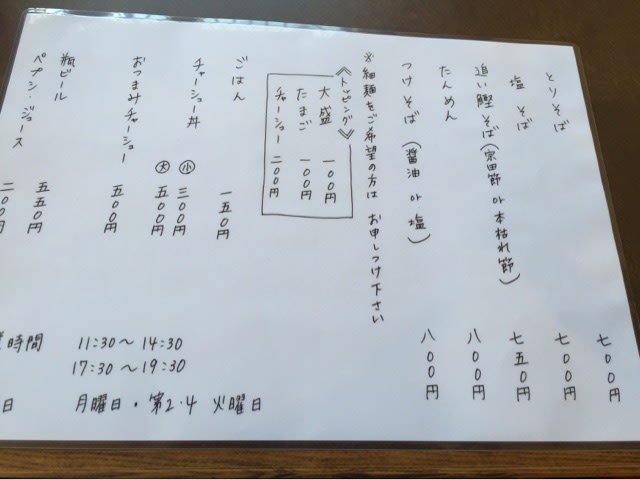 とりそば 七〇〇円
塩そば 七〇〇円
追い鰹そば(宗田節 or 本枯れ節) 七五〇円
たんめん 八〇〇円
つけそば(醤油 or 塩) 八〇〇円
※細麺をご希望の方は お申しつけ下さい
《トッピング》
大盛 一〇〇円
たまご 一〇〇円
チャーシュー 二〇〇円
ごはん 一五〇円
チャーシュー丼 小 三〇〇円
大 五〇〇円
おつまみチャーシュー 五〇〇円
瓶ビール 五五〇円
ペプシ・ジュース 二〇〇円
時間 11:30〜14:30
17:30〜19:30
日 月曜日・第2・4 火曜日